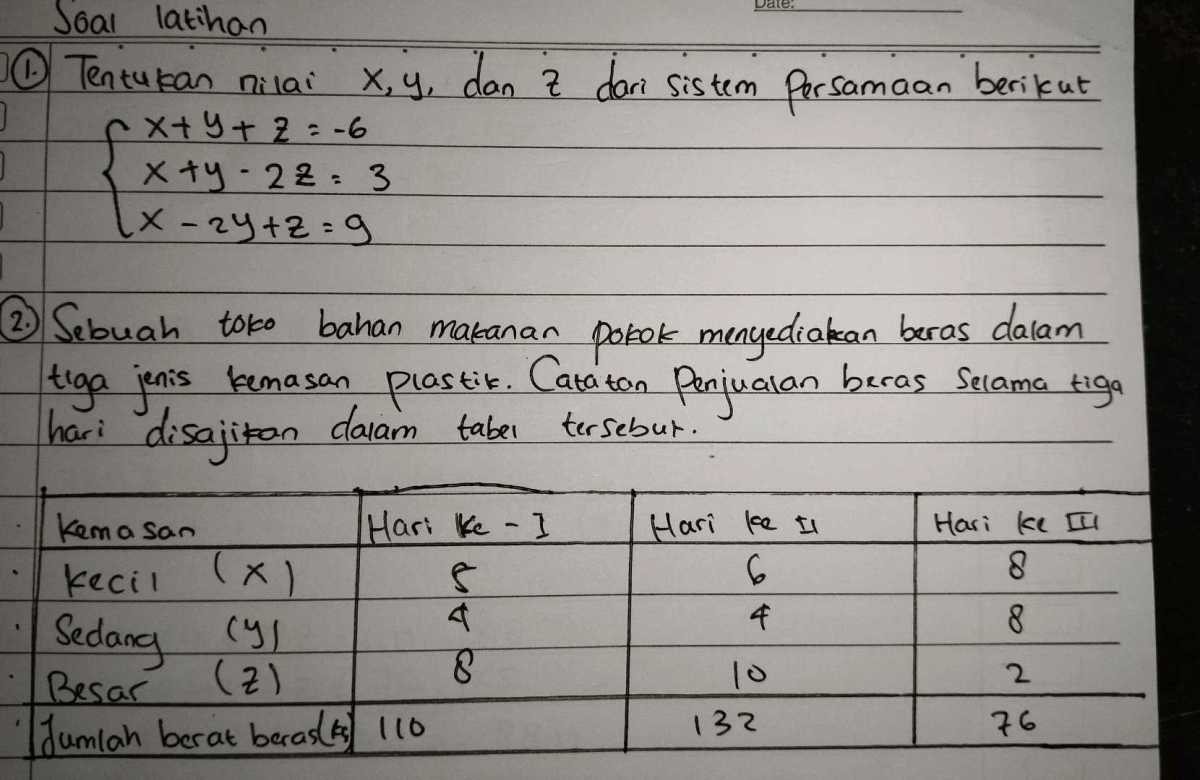 Date:
Soal latihan
1. Tentukan nilai x, y, dan z dari sistem Persamaan berikut
x + y + z = -6
x + y - 2z = 3
x - 2y + z = 9
2. Sebuah toko bahan makanan pokok menyediakan beras dalam
tiga jenis kemasan plastik. Catatan Penjualan beras Selama tiga
hari disajikan dalam tabel tersebut.
Kemasan Hari Ke - I Hari ke II Hari ke III
kecil (x) 5 6 8
Sedang (y) 4 4 8
Besar (z) 8 10 2
Jumlah berat beras (kg) 110 132 76